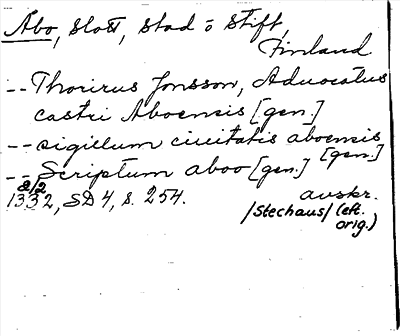 Abo, slott, stad o stift,
Finland
-- Thorirus Jonsson, Aduocatus
castri Aboensis [gen.]
-- sigillum ciuitatis aboensis
[gen.]
-- Scriptum aboo [gen.]
8/2
1332, SD 4, s. 254. avskr.
/Stechaus/ (eft.
orig.)